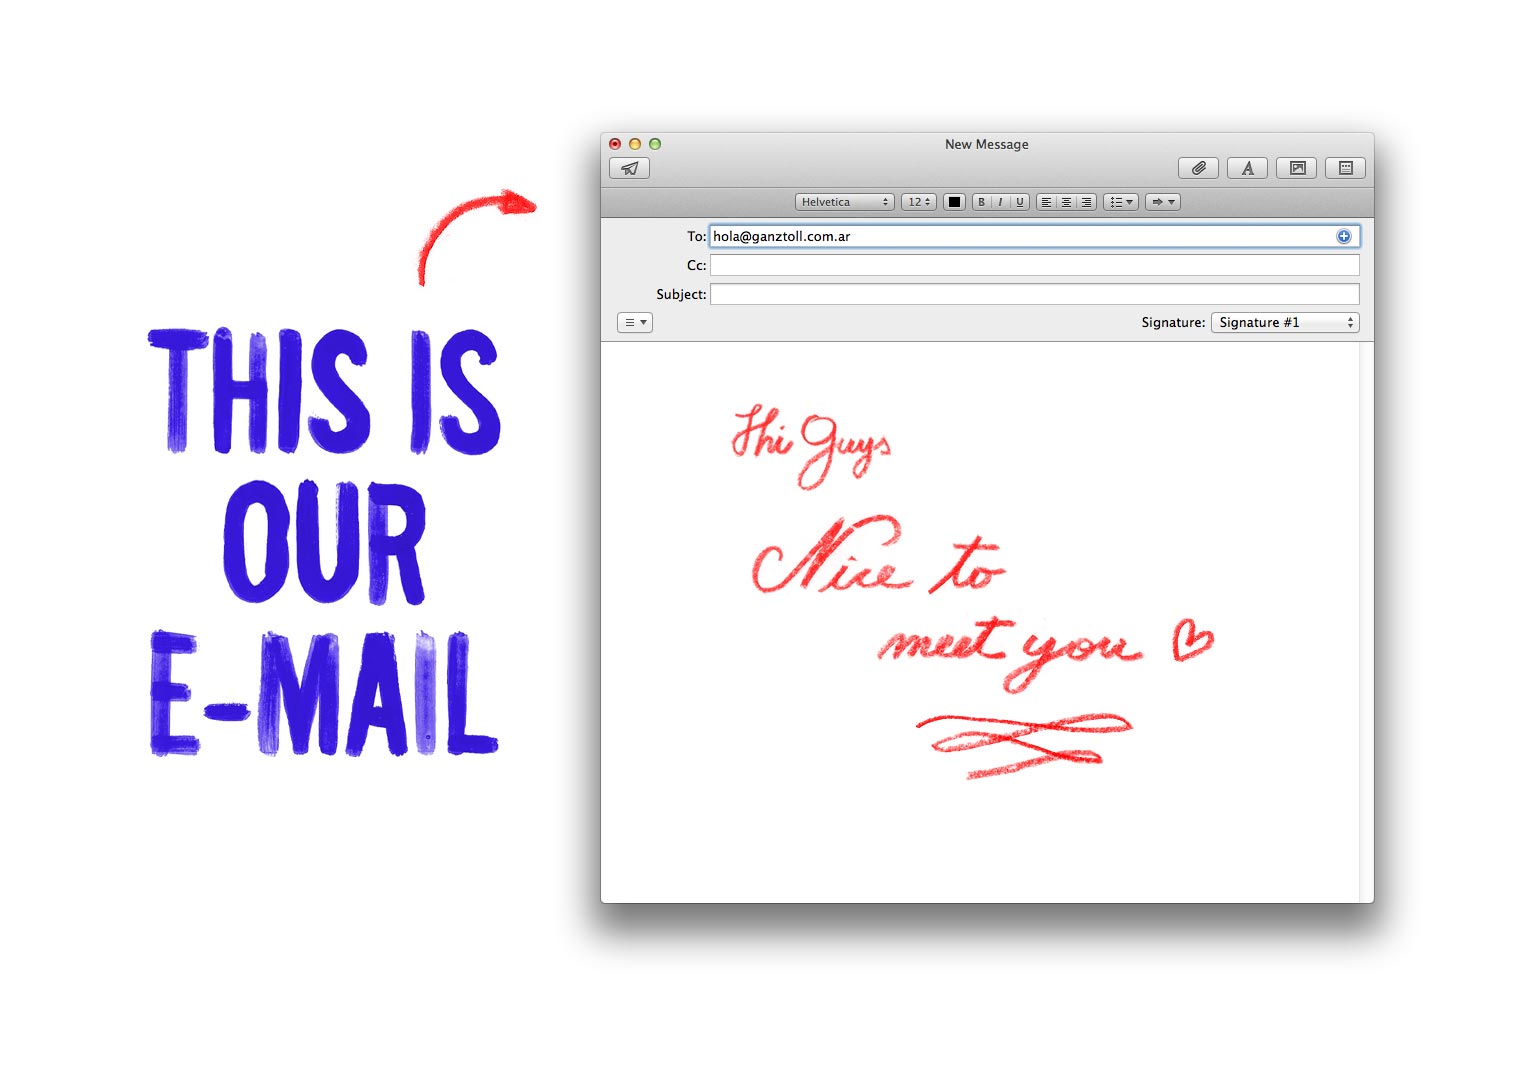 THIS IS
OUR
E-MAIL
New Message
Helvetica 12 B I U
To: hola@ganztoll.com.ar
Cc:
Subject:
Signature: Signature #1
Hi Guys
Nice to
meet you